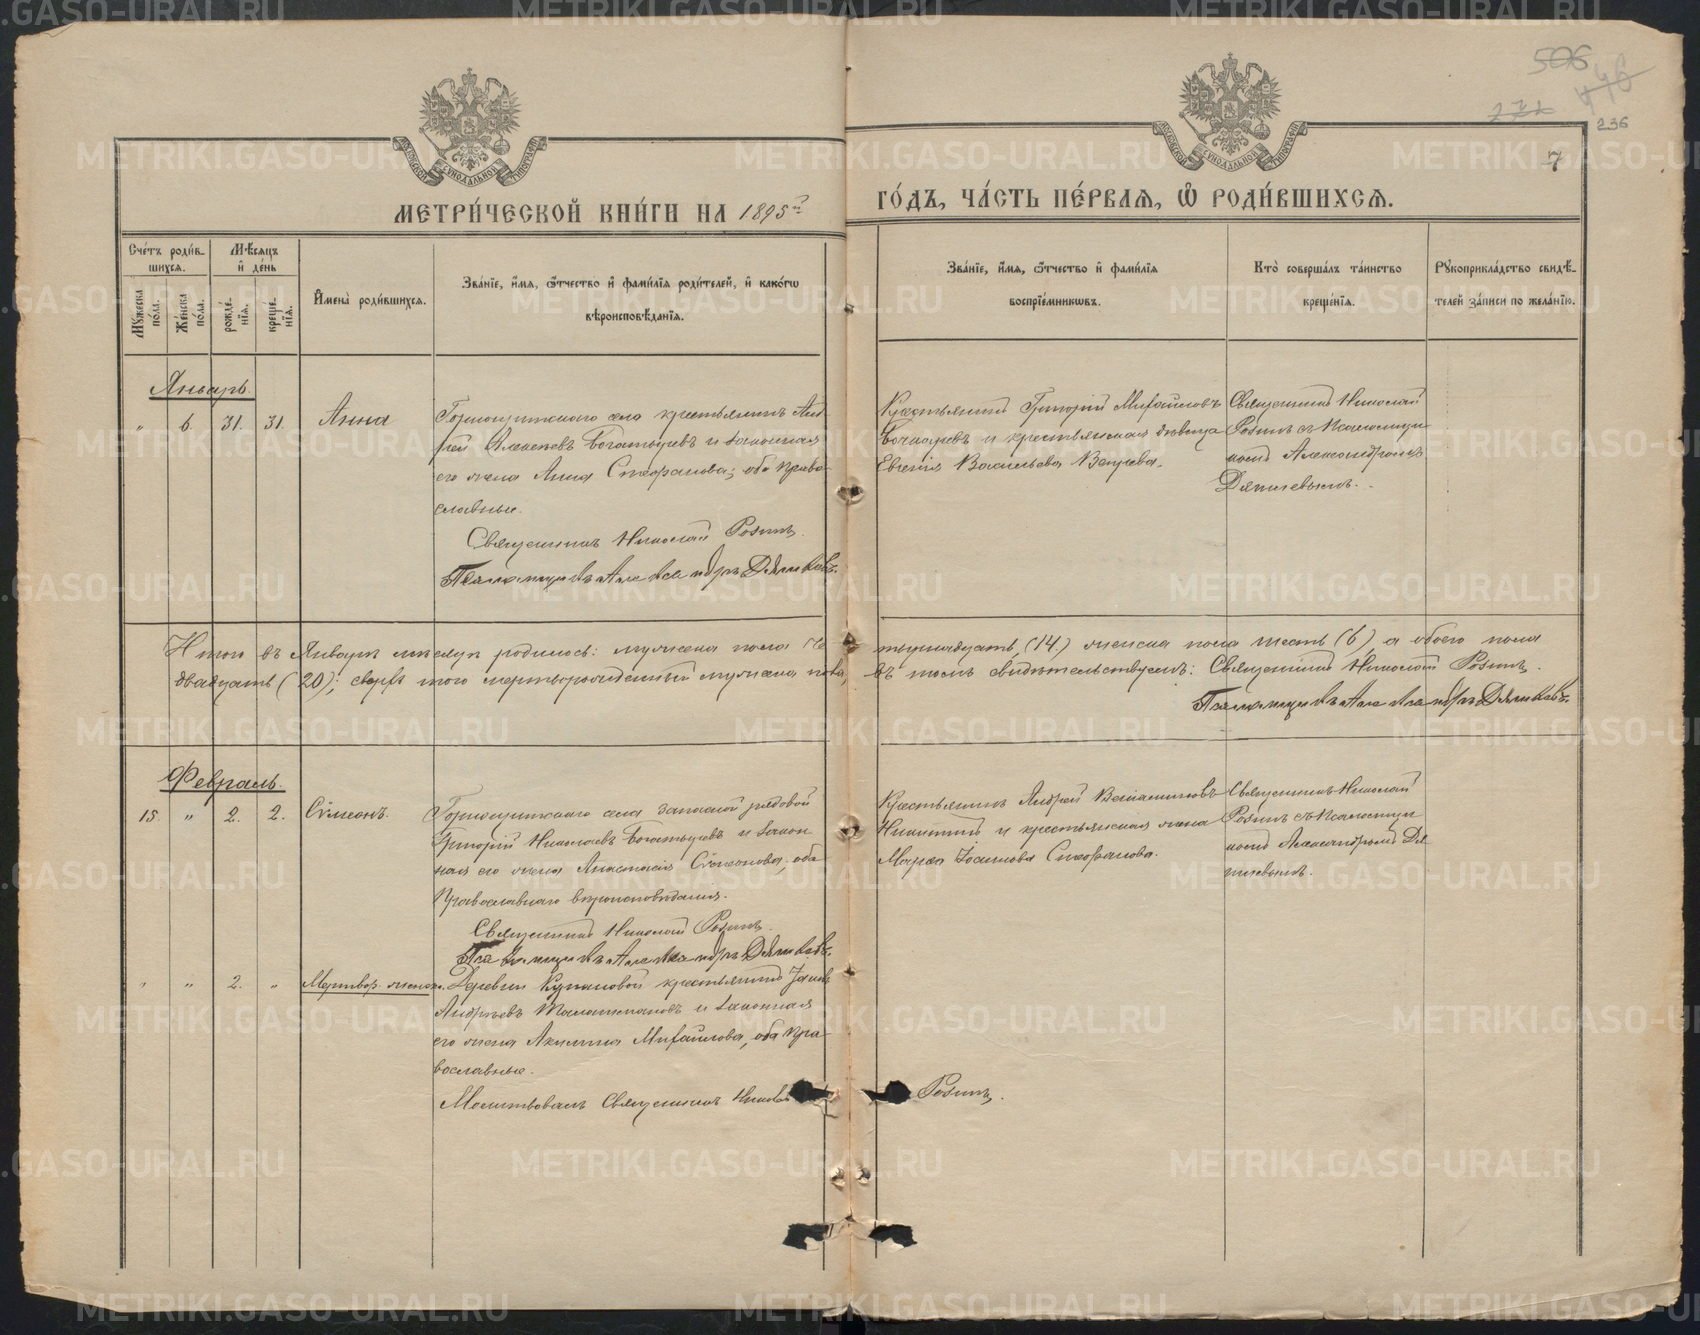 506
46
271
236
7
МОСКОВСКОЙ СУНОДАЛЬНОЙ ТИПОГРАФІИ
МОСКОВСКОЙ СУНОДАЛЬНОЙ ТИПОГРАФІИ
МЕТРИ́ЧЕСКОЙ КНИ́ГИ НА 1895й
ГО́ДЪ, ЧА́СТЬ ПЕ́РВАЯ, Ѽ РОДИ́ВШИХСЯ.
Сче́тъ роди́в-
шихся.
Мѣ́сяцъ
и҆ де́нь
Му́жеска
по́ла.
Же́нска
по́ла.
рожде́-
нїя.
креще́-
нїя.
И҆мена̀ роди́вшихся.
Зва́нїе, и҆́мя, ѻ҆́тчество и҆ фами́лїя роди́телей, и҆ како́гѡ
вѣроисповѣ́данїя.
Зва́нїе, и҆́мя, ѻ҆́тчество и҆ фами́лїя
воспрїе́мникѡвъ.
Кто̀ соверша́лъ та́инство
креще́нїя.
Рꙋкоприкла́дство свидѣ́-
телей за́писи по жела́нїю.
Январь.
" 6. 31. 31. Анна
Горнощитскаго села крестьянинъ Анд
рей Алексѣевъ Богатыревъ и законная
его жена Анна Стефанова; оба право-
славные.
Священникъ Николай Розинъ.
Псаломщикъ Александръ Дягилевъ.
Крестьянинъ Григорій Михайловъ
и крестьянская дѣвица
Евгенія Васильева
Священникъ Николай
Розинъ съ псаломщи
комъ Александромъ
Дягилевымъ.
Итого въ Январѣ мѣсяцѣ родилось: мужеска пола че
тырнадцать (14) женска пола шесть (6) а обоего пола
двадцать (20); сверхъ того мертворожденный мужеска пола,
въ томъ свидѣтельствуемъ: Священникъ Николай Розинъ.
Псаломщикъ Александръ Дягилевъ.
Февраль.
15 " 2. 2. Сѵмеонъ.
Горнощитскаго села запасной рядовой
Григорій Николаевъ Богатыревъ и закон
ная его жена Анастасія Сѵмеонова; оба
Православнаго вѣроисповѣданія.
Священникъ Николай Розинъ.
Псаломщикъ Александръ Дягилевъ.
Крестьянинъ Андрей
Никитинъ и крестьянская жена
Марѳа Стефанова.
Священникъ Николай
Розинъ съ псаломщи
комъ Александромъ Дя
гилевымъ.
" " 2. " Мертвор. женск.
Деревни Кургановой крестьянинъ
Андреевъ и законная
его жена Акилина Михайлова, оба пра-
вославные.
Молитвовалъ Священникъ Никола
Розинъ.
METRIKI.GASO-URAL.RU